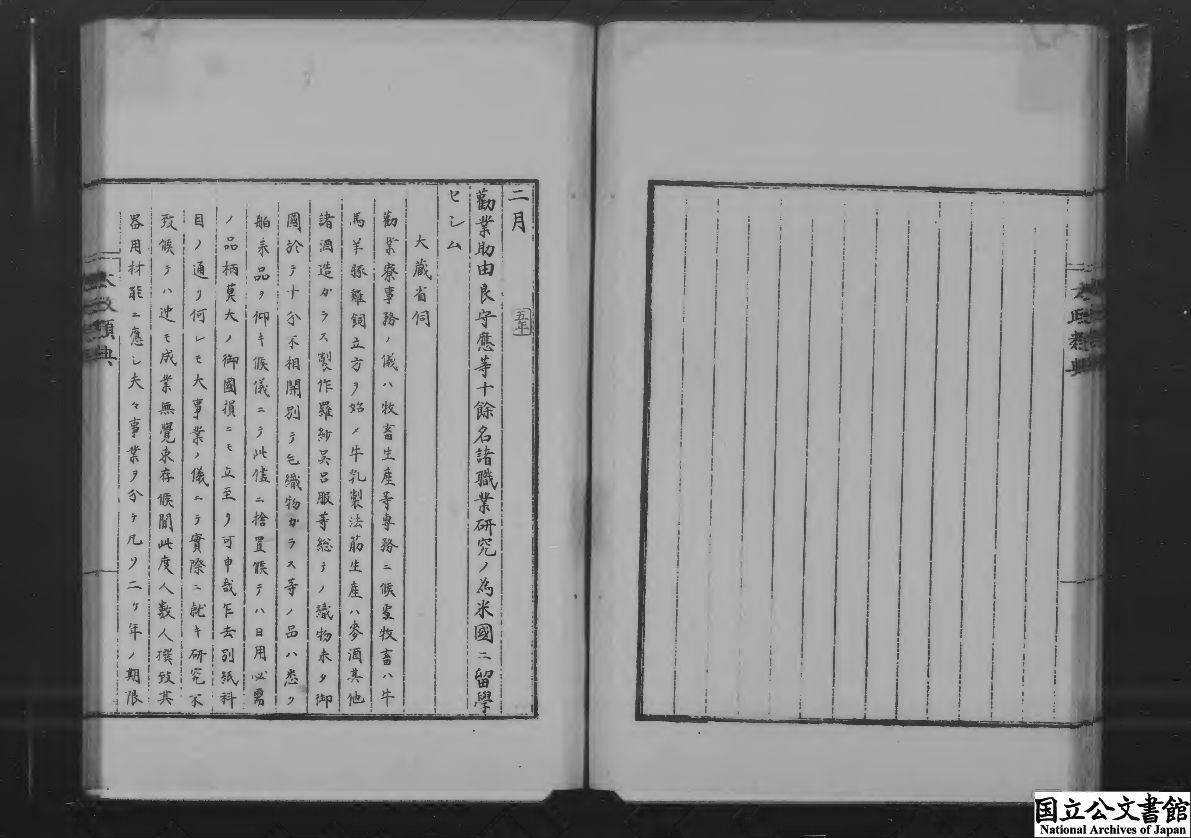 太政類典
二月 五年
勸業助由良守應等十餘名諸職業研究ノ為米國ニ留學
セシム
大藏省伺
勸業寮事務ノ儀ハ牧畜生産等專務ニ候處牧畜ハ牛
馬羊豚雞飼立方ヲ始メ牛乳製法筋生産ハ麥酒其他
諸酒造ガラス製作羅紗吳呂服等総テノ織物未タ御
國於テ十分不相開別テ毛織物ガラス等ノ品ハ悉ク
舶来品ヲ仰キ候儀ニテ此儘ニ捨置候テハ日用必需
ノ品柄莫大ノ御國損ニモ立至リ可申哉乍去別紙科
目ノ通リ何レモ大事業ノ儀ニテ實際ニ就キ研究不
致候テハ迚モ成業無覺束存候間此度人數人撰致其
器用材能ニ應シ夫々事業ヲ分ケ凡ソ二ケ年ノ期限
太政類典
国立公文書館
National Archives of Japan